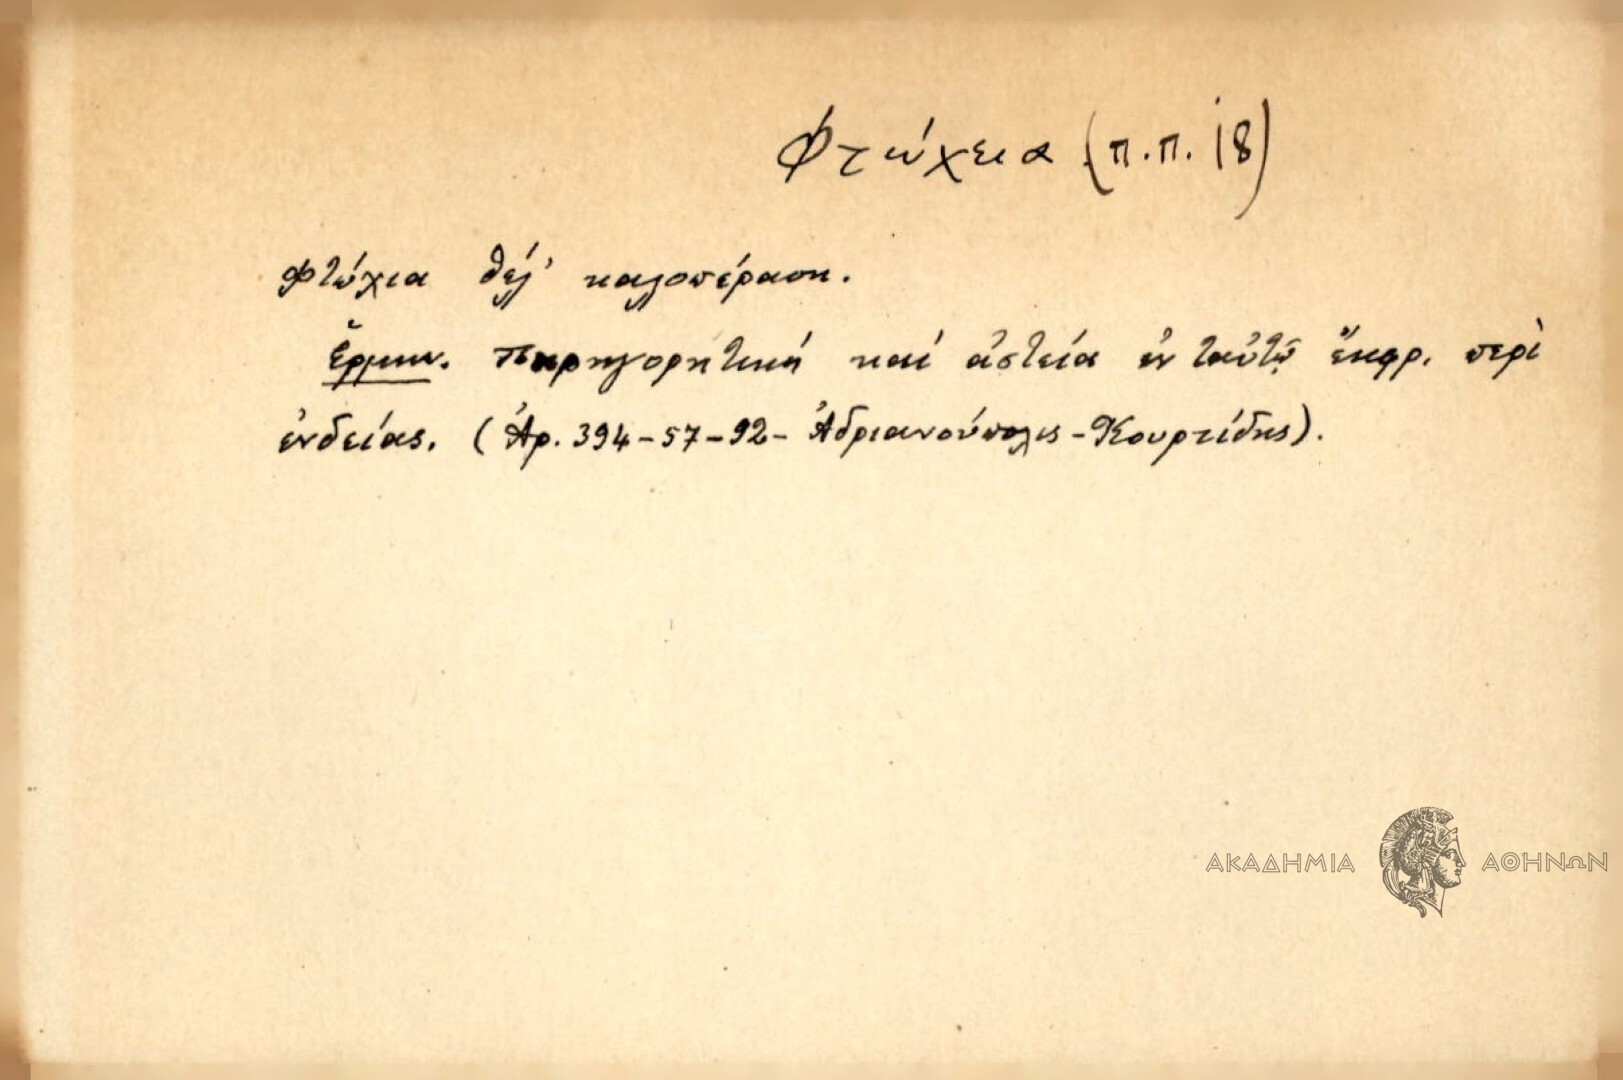 Φτώχεια (π.π. 18)
Φτώχια θέλ' καλοπέραση.
Ἑρμην. Παρηγορητική καί ἀστεία ἐν ταὐτῷ ἔκφρ. περὶ
ἐνδείας. (Ἀρ. 394-57-92- Ἀδριανούπολις-Κουρτίδης).
ΑΚΑΔΗΜΙΑ ΑΘΗΝΩΝ